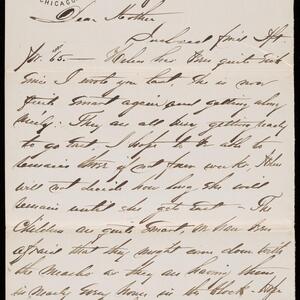 CHICAGO
Dear Mother
Inclosed find Dft
for $65.— Helen has been quite sick
since I wrote you last. She is now
quite smart again and getting along
nicely. They are all busy getting ready
to go East. I hope to be able to
remain there 3 or 4 weeks. Helen
will not decide how long she will
remain until she gets East — The
Children are quite smart. We have been
afraid that they might come down with
the Measles as they are having them
in nearly every house in the block. Hope